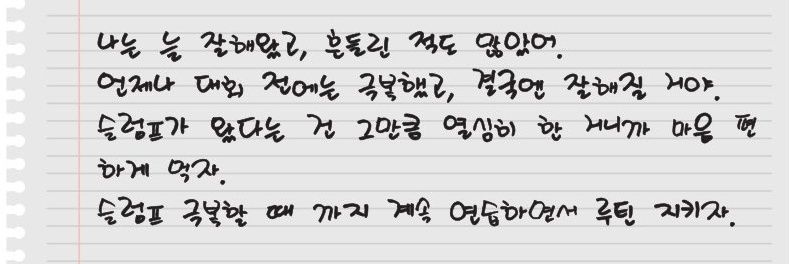 나는 늘 잘해왔고, 흔들린 적도 많았어.
언제나 대회 전에는 극복했고, 결국엔 잘해질 거야.
슬럼프가 왔다는 건 그만큼 열심히 한 거니까 마음 편
하게 먹자.
슬럼프 극복할 때 까지 계속 연습하면서 루틴 지키자.